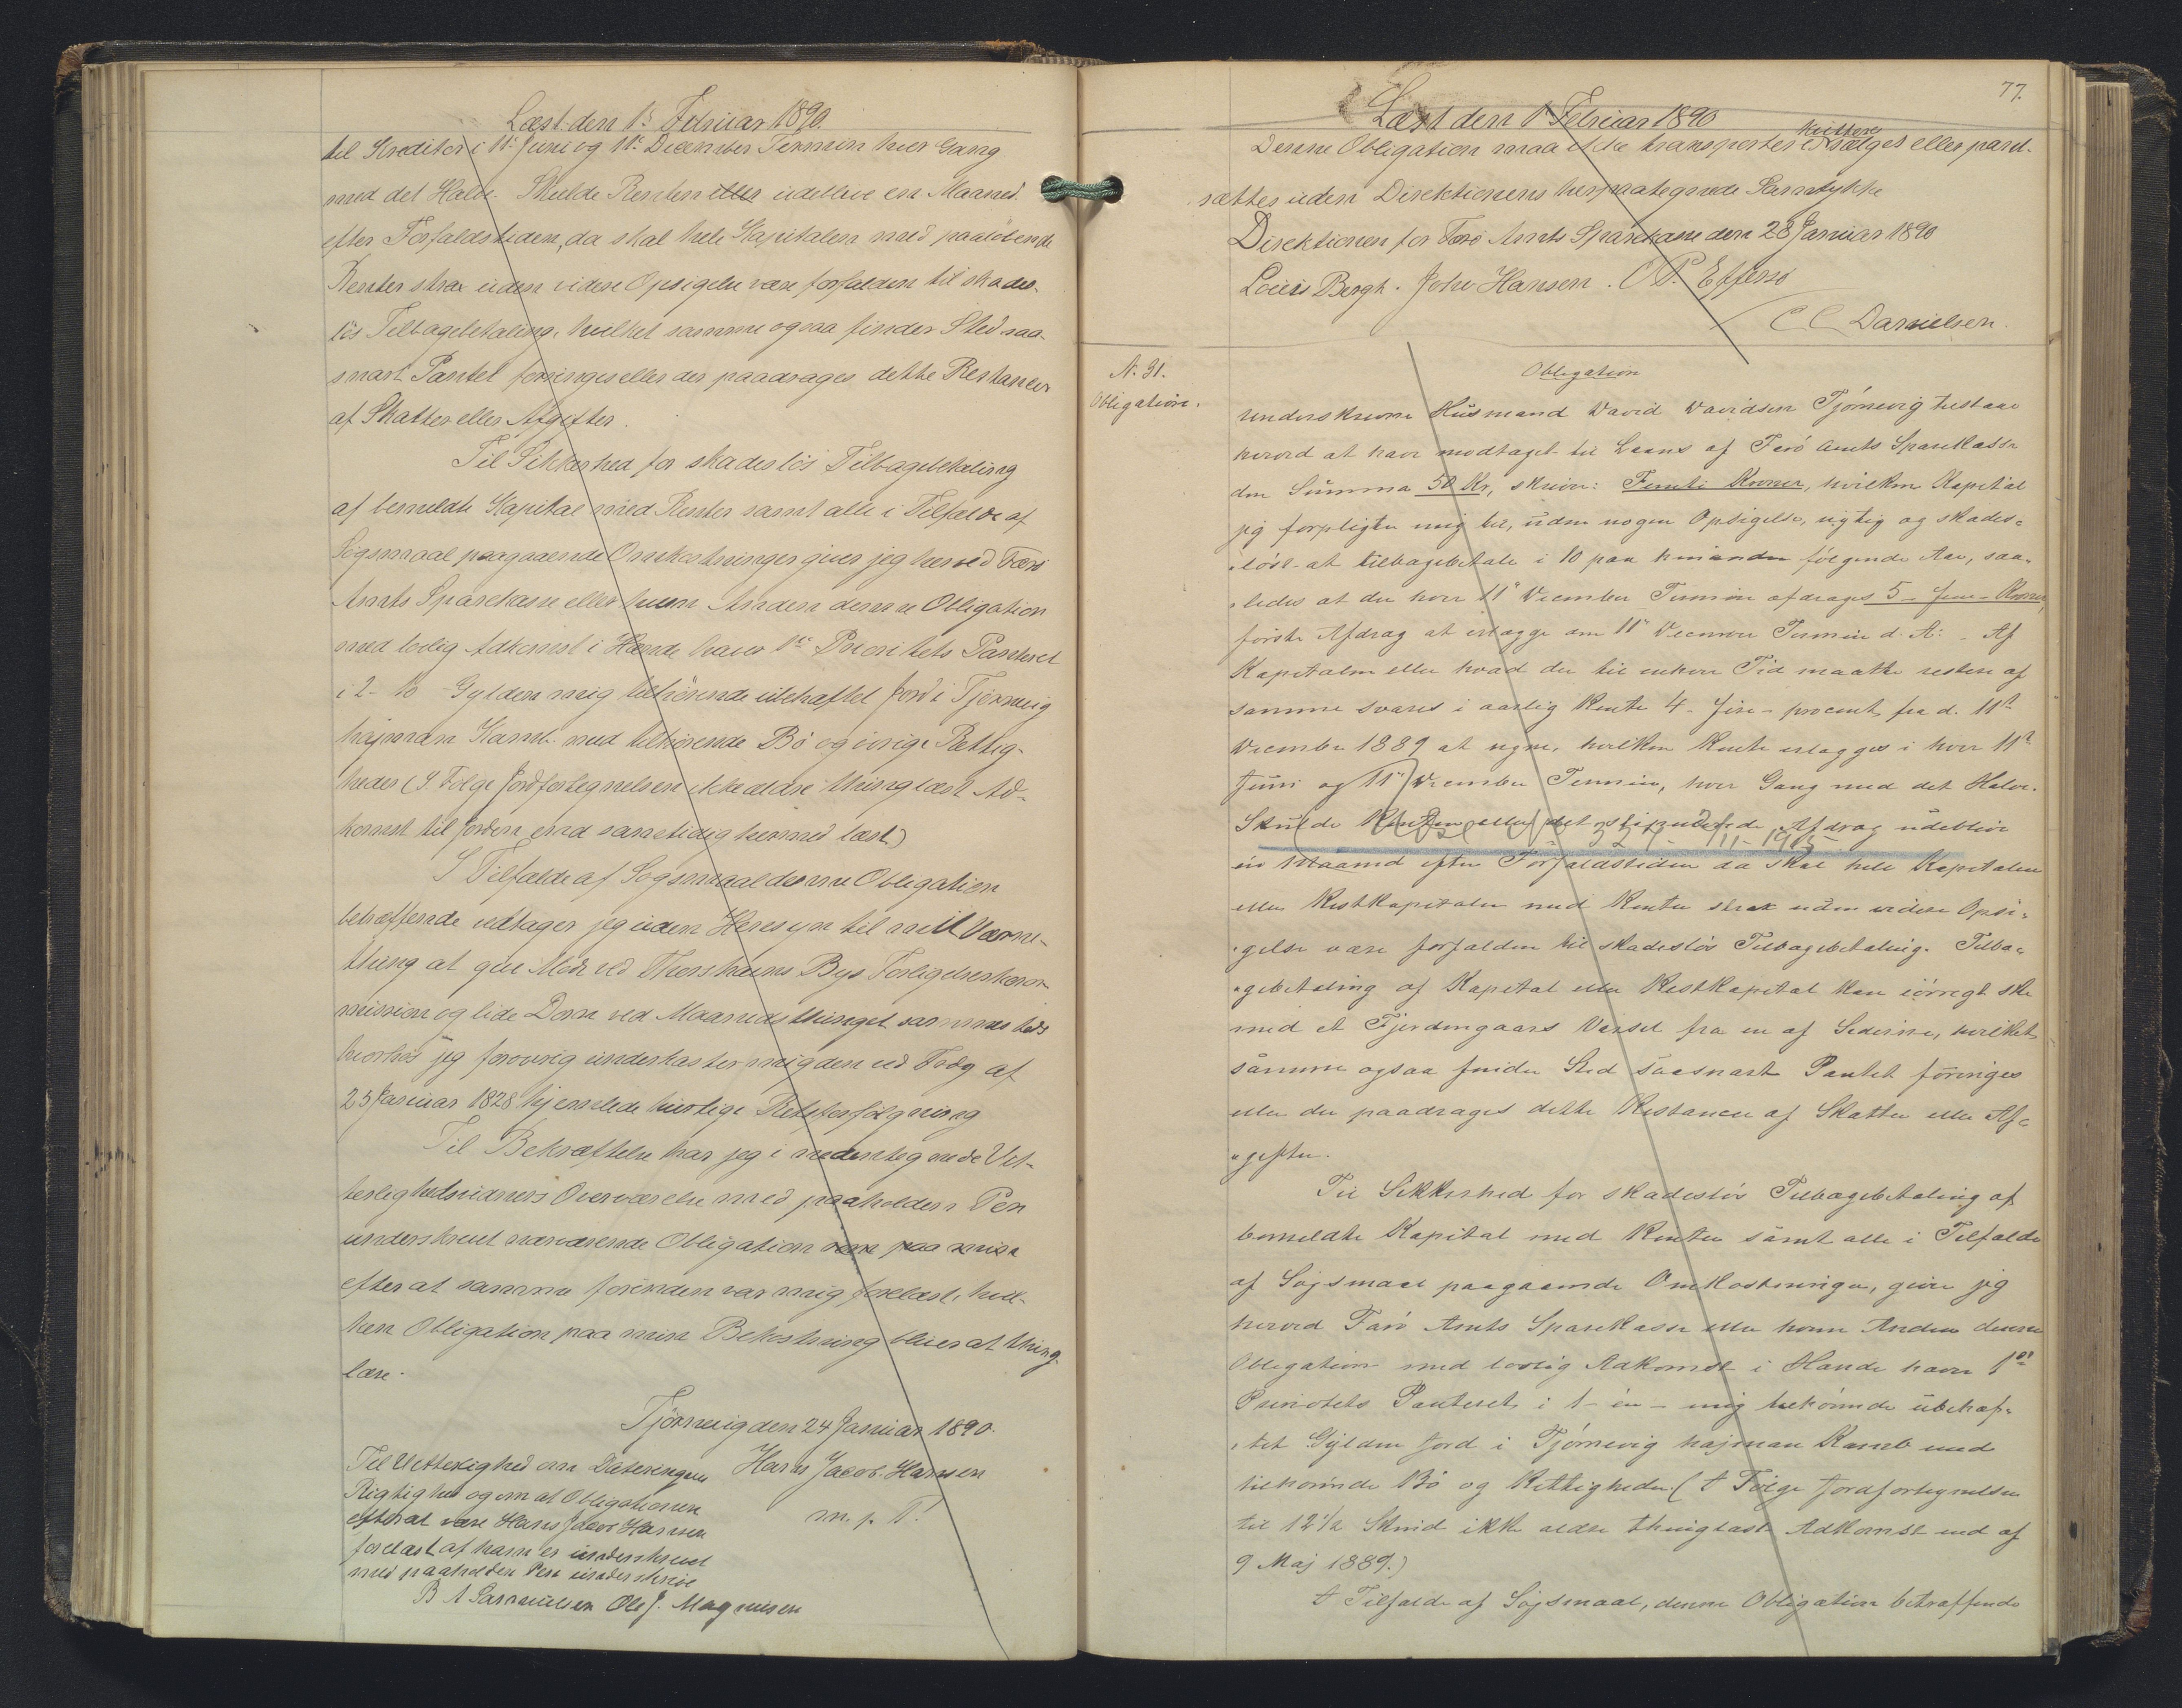 Læst den 1' Februar 1890.
til Kreditor i 11' Juni og 11' December Termin hver Gang
med det Halve. Skulde Renten eller udeblive en Maaned
efter Forfaldstiden, da skal hele Kapitalen med paaløbende
Renter strax uden videre Opsigelse være forfalden til skades-
løs Tilbagebetaling, hvilket samme ogsaa finder Sted saa-
snart Pantet forringes eller der paadrages dette Restancer
af Skatter eller Afgifter.
Til Sikkerhed for skadesløs Tilbagebetaling
af bemeldte Kapital med Renter samt alle i Tilfælde af
Søgsmaal paagaaende Omkostninger giver jeg herved Færø
Amts Sparekasse eller hvem Anden denne Obligation
med lovlig Adkomst i Hænde haver 1ste Prioritets Panteret
i 2 - to - Gylden mig tilhørende ubehæftet Jord i Tjørnevig
hájman Kamb. med tilhørende Bø og øvrige Rettig-
heder (I Følge Jordfortegnelsen ikke ældre thinglæst Ad-
komst til Jorden end samtidig hermed læst)
I Tilfælde af Søgsmaal denne Obligation
betræffende vedtager jeg uden Hensyn til mit Værne-
thing at give Møde ved Thorshavns Bys Forligelseskom-
mission og lide Dom ved Maanedsthinget sammesteds
hvorhos jeg forøvrig underkaster mig den ved Frdg af
25 Januar 1828 hjemlede hurtige Retsforfølgning
Til Bekræftelse har jeg i nedentegnede Vit-
terlighedsvidners Overværelse med paaholden Pen
underskrevet nærværende Obligation paa min
efter at samme forinden var mig forelæst, hvil-
ken Obligation paa min Bekostning bliver at thing-
læse.
Tjørnevig den 24 Januar 1890.
Til Vitterlighed om Dateringens Hans Jacob Hansen
Rigtighed og om at Obligationen m. p. P.
efter at være Hans Jacob Hansen
forelæst af ham er underskrevet
med paaholden Pen underskrive
B A Samuelsen Ole J. Magnusen
77.
Læst den 1 Februar 1890
Denne Obligation maa ikke transporteres, sælges eller pant-
sættes uden Direktionens herpaategnede Samtykke
Direktionen for Færø Amts Sparekasse den 28 Januar 1890
Louis Bergh. John Hansen. O P. Effersø
C C Danielsen.
N. 31.
Obligation.
Obligation
Underskrevne Husmand David Davidsen Tjørnevig tilstaar
herved at have modtaget til Laans af Færø Amts Sparekasse
den Summa 50 Kr, skriver: Femti Kroner, hvilken Kapital
jeg forpligter mig til, uden nogen Opsigelse, rigtig og skades-
løst at tilbagebetale i 10 paa hinanden følgende Aar, saa-
ledes at der hver 11' December Termin afdrages 5 - fem - Kroner,
første Afdrag at erlægge om 11' December Termin d. A: - Af
Kapitalen eller hvad der til enhver Tid maatte restere af
samme svares i aarlig Rente 4 - fire - procent, fra d. 11te
December 1889 at regne, hvilken Rente erlægges i hver 11te
Juni og 11' December Termin, hver Gang med det Halve.
Skulde Renten eller det stipulerede Afdrag udeblive
en Maaned efter Forfaldstiden da skal hele Kapitalen
eller Restkapitalen med Renter strax uden videre Opsi-
gelse være forfalden til skadesløs Tilbagebetaling. Tilba-
gebetaling af Kapital eller Restkapital kan iøvrigt ske
med et Fjerdingaars Varsel fra en af Siderne, hvilket
samme ogsaa finder Sted saasnart Pantet forringes
eller der paadrages dette Restancer af Skatter eller Af-
gifter.
Til Sikkerhed for skadesløs Tilbagebetaling af
bemeldte Kapital med Renter samt alle i Tilfælde
af Søgsmaal paagaaende Omkostninger, giver jeg
herved Færø Amts Sparekasse eller hvem Anden denne
Obligation med lovlig Adkomst i Hænde haver 1ste
Prioritets Panteret i 1 - én - mig tilhørende ubehæf-
tet Gylden Jord i Tjørnevig hájman Kamb med
tilhørende Bø og Rettigheder. (I Følge Jordfortegnelsen
til 12 1/2 Skind ikke ældre thinglæst Adkomst end af
9 Maj 1889.)
I Tilfælde af Søgsmaal, denne Obligation betræffende